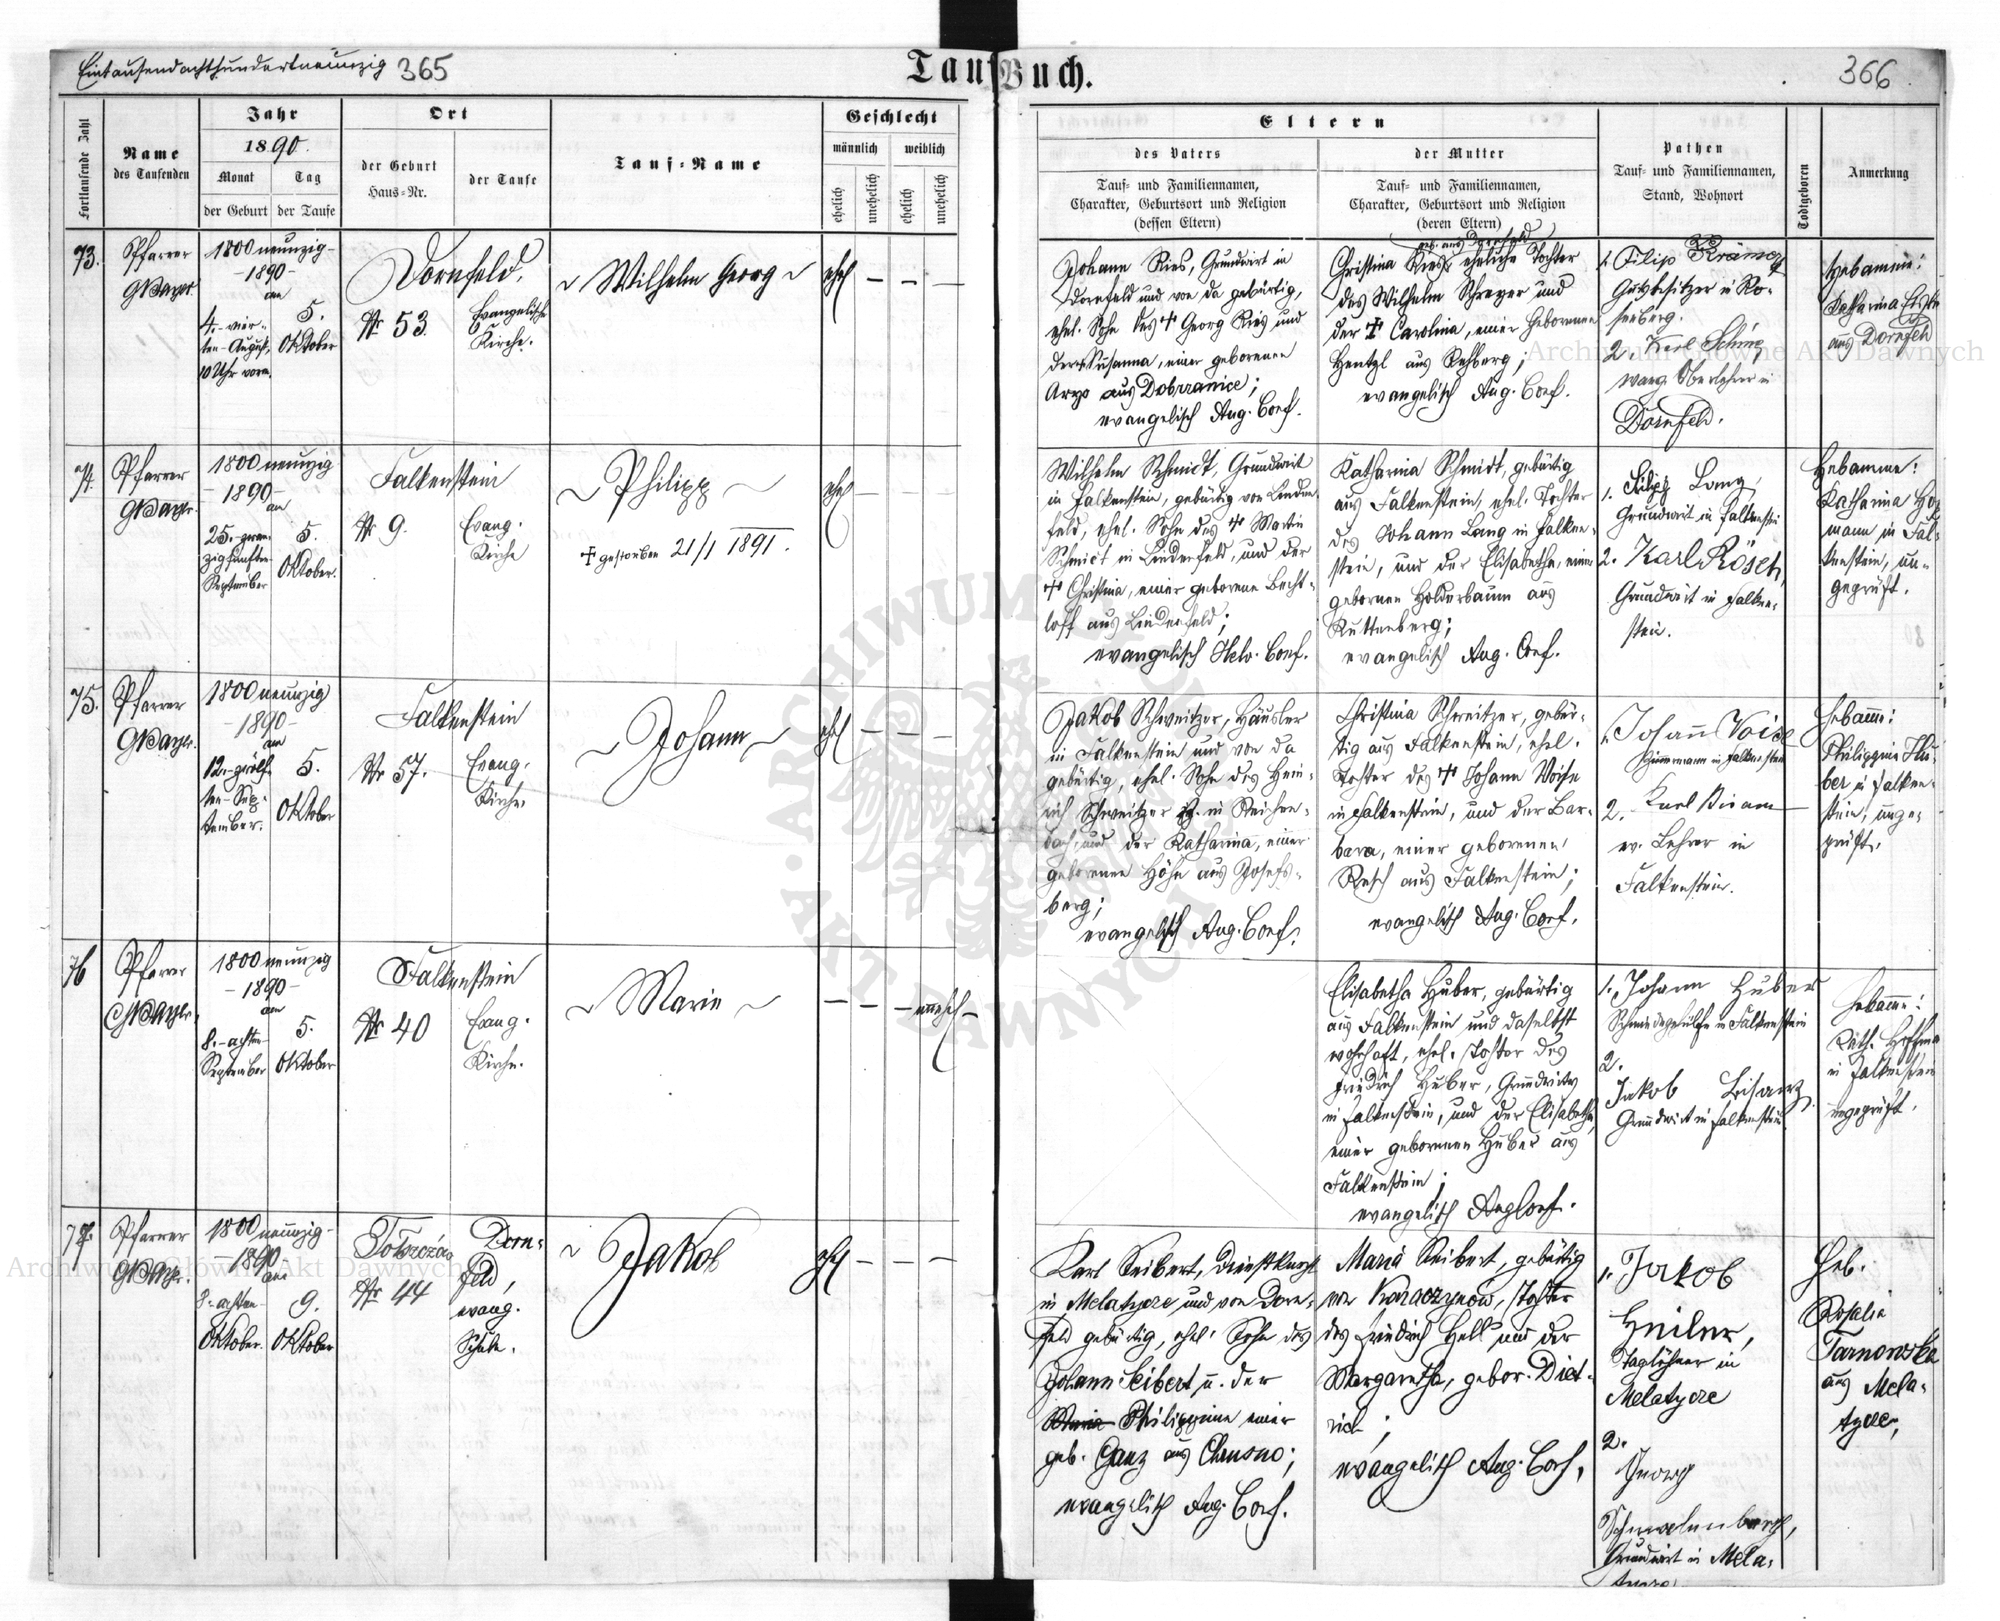 Eintausendachthundertneunzig 365
Taufbuch.
366
Fortlaufende Zahl
Name
des Taufenden
Jahr
1890.
Monat
Tag
der Geburt
der Taufe
Ort
der Geburt
Haus-Nr.
der Taufe
Tauf-Name
Geschlecht
männlich
weiblich
ehelich
unehelich
ehelich
unehelich
Eltern
des Vaters
Tauf- und Familiennamen,
Charakter, Geburtsort und Religion
(dessen Eltern)
der Mutter
Tauf- und Familiennamen,
Charakter, Geburtsort und Religion
(deren Eltern)
Pathen
Tauf- und Familiennamen,
Stand, Wohnort
Todtgeboren
Anmerkung
73.
Pfarrer
1800 neunzig-
-1890-
am
4.- vier-
ten August,
10 Uhr vorm.
5.
Oktober
Dornfeld.
Nr 53.
Evangelische
Kirche.
Wilhelm Georg
ehel
Johann Ries, Grundwirt in
Dornfeld und von da gebürtig,
ehel. Sohn des † Georg Ries und
der Susanna, einer geborenen
aus Dobrzanice;
evangelisch Aug. Conf.
geb. aus Dornfeld
Christina Ries, eheliche Tochter
des Wilhelm Schreyer und
der † Carolina, einer geborenen
Hentzl aus Rehberg;
evangelisch Aug. Conf.
1. Filip Krämer
Gutsbesitzer in Ro-
senberg.
2. Karl
evang. Oberlehrer in
Dornfeld.
Hebamme:
Katharina
aus Dornfeld
74.
Pfarrer
1800 neunzig
-1890-
am
25.- zwan-
zigfünften
September
5.
Oktober.
Falkenstein
Nr 9.
Evang.
Kirche
Philipp
† gestorben 21/1 1891.
ehel
Wilhelm Schmidt, Grundwirt
in Falkenstein, gebürtig von Linden-
feld, ehel. Sohn des † Martin
Schmidt in Lindenfeld, und der
† Christina, einer geborene Becht-
loff aus Lindenfeld;
evangelisch Helv. Conf.
Katharina Schmidt, gebürtig
aus Falkenstein, ehel. Tochter
des Johann Lang in Falken-
stein, und der Elisabetha, einer
gebornen Holderbaum aus
Ruttenberg;
evangelisch Aug. Conf.
1. Filip Lang,
Grundwirt in Falkenstein
2. Karl Rösch,
Grundwirt in Falken-
stein.
Hebamme:
Katharina Hof-
mann in Fal-
kenstein, un-
geprüft.
75.
Pfarrer
1800 neunzig
-1890-
am
12.- zwölf-
ten Sep-
tember.
5.
Oktober
Falkenstein
Nr 57.
Evang.
Kirche.
Johann
ehel
Jakob Schweitzer, Häusler
in Falkenstein und von da
gebürtig, ehel. Sohn des Hein-
rich Schweitzer in Reichen-
bach, und der Katharina, einer
geborenen Höhn aus Josefs-
berg;
evangelisch Aug. Conf.
Christina Schweitzer, gebür-
tig aus Falkenstein, ehel.
Tochter des † Johann Voise
in Falkenstein, und der Bar-
bara, einer geborenen
Resch aus Falkenstein;
evangelisch Aug. Conf.
1. Johann Voise
Zimmermann in Falkenstein
2. Karl
ev. Lehrer in
Falkenstein.
Hebamme:
Philippine Hu-
ber in Falken-
stein, unge-
prüft.
76
Pfarrer
1800 neunzig
-1890-
am
8.- achten
September
5.
Oktober
Falkenstein
Nr 40
Evang.
Kirche.
Marie
unehel
Elisabetha Huber, gebürtig
aus Falkenstein und daselbst
wohnhaft, ehel. Tochter des
Friedrich Huber, Grundwirten
in Falkenstein, und der Elisabetha,
einer gebornenen Huber aus
Falkenstein;
evangelisch Aug Conf.
1. Johann Huber
Schmiedgehülfe in Falkenstein
2.
Jakob Bisanz
Grundwirt in Falkenstein.
Hebamme:
Kath. Hoffma
in Falkenstein
ungeprüft.
77.
Pfarrer
1800 neunzig-
-1890-
am
8.- achten
Oktober.
9.
Oktober
Tołszczów
Nr 44
Dorn-
feld,
evang.
Schule.
Jakob
ehel
Karl Seibert, Dienstknecht
in Melatycze und von Dorn-
feld gebürtig, ehel. Sohn des
Johann Seibert u. der
Philippine einer
geb. Ganz aus Chrusno;
evangelisch Aug. Conf.
Maria Seibert, gebürtig
von Karaczynow, Tochter
des Friedrich Hell und der
Margaretha, gebor. Diet-
rich;
evangelisch Aug. Conf.
1. Jakob
Heiler,
Taglöhner in
Melatycze
2.
Georg
Grundwirt in Mela-
tycze
Heb.
Rosalia
Tarnowska
aus Mela-
tycze,
Archiwum Główne Akt Dawnych
Archiwum Główne Akt Dawnych